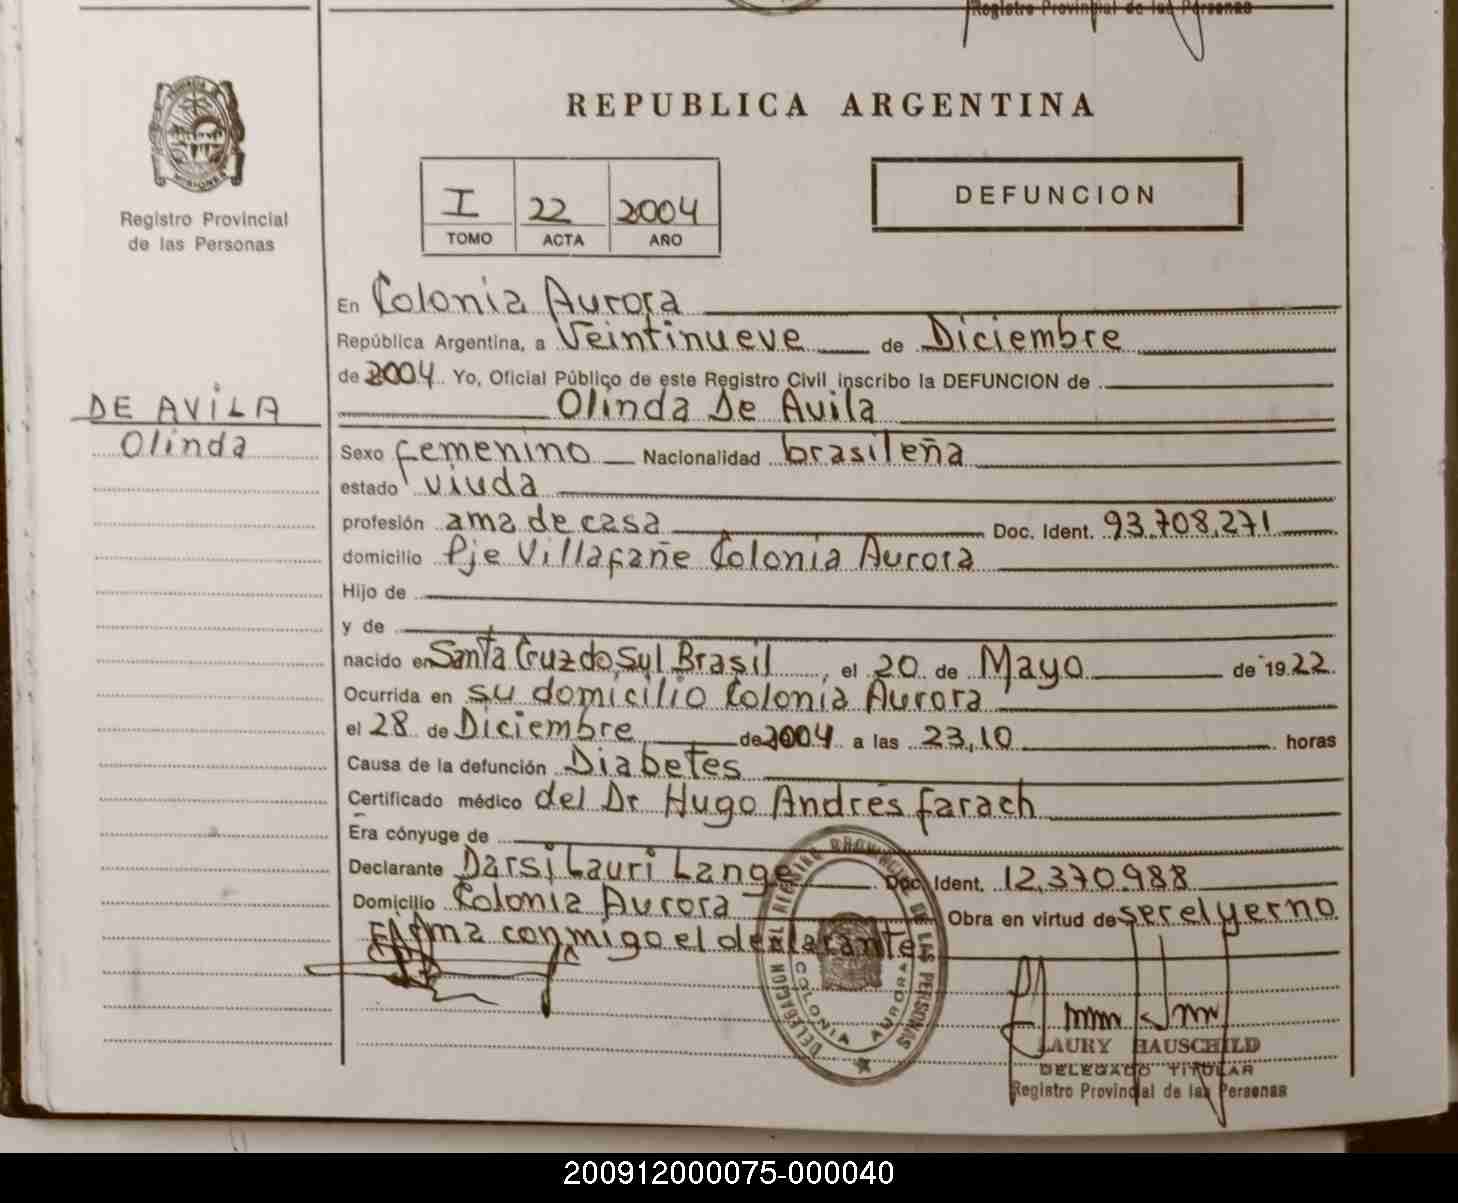 Registro Provincial de las Personas
REPUBLICA ARGENTINA
Registro Provincial
de las Personas
I 22 2004
TOMO ACTA AÑO
DEFUNCION
En Colonia Aurora
República Argentina, a Veintinueve de Diciembre
de 2004 Yo, Oficial Público de este Registro Civil inscribo la DEFUNCION de
DE AVILA
Olinda De Avila
Olinda
Sexo femenino Nacionalidad brasileña
estado viuda
profesión ama de casa Doc. Ident. 93.708.271
domicilio Pje Villafañe Colonia Aurora
Hijo de
y de
nacido en Santa Cruz do Sul Brasil, el 20 de Mayo de 1922.
Ocurrida en su domicilio Colonia Aurora
el 28 de Diciembre de 2004 a las 23,10 horas
Causa de la defunción Diabetes
Certificado médico del Dr Hugo Andrés Farach
Era cónyuge de
Declarante Darsi Lauri Lange Doc. Ident. 12.370.988
Domicilio Colonia Aurora Obra en virtud de ser el yerno
Firma conmigo el declarante
DELEGACION DEL REGISTRO PROVINCIAL DE LAS PERSONAS
COLONIA AURORA
LAURY HAUSCHILD
DELEGADO TITULAR
Registro Provincial de las Personas
200912000075-000040